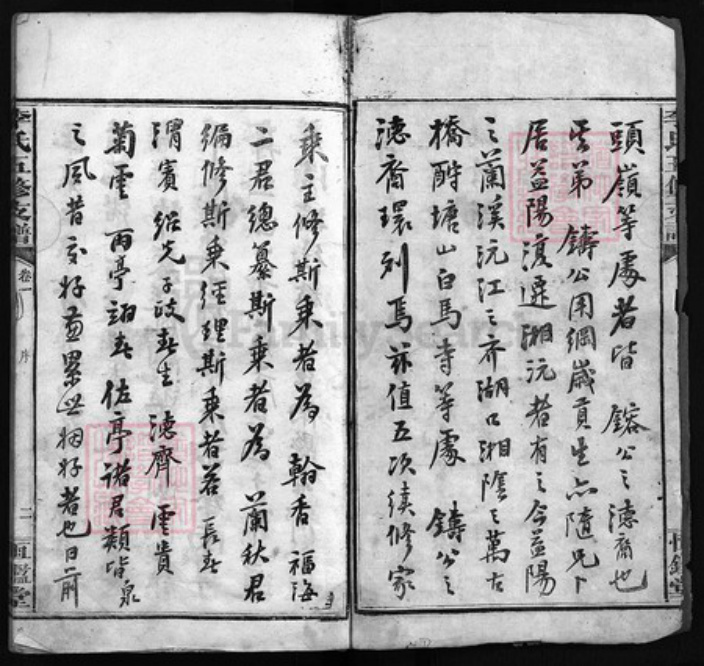 頭嶺等處者皆 鎔公之德裔也
其弟 鑄公用綱歲貢生亦隨兄卜
居益陽濱達湘沅者有之今益陽
之蘭溪沅江之齐湖口湘陰之萬古
橋酧塘山白馬寺等處 鑄公之
德裔環列焉茲值五次續修家
乘主修斯乘者為 翰香 福海
二君總纂斯乘者為 蘭秋君
编修斯乘經理斯乘者若 長春
渭賓 紹先 子政 春生 德齊 雲貴
菊雲 雨亭 翊春 佐亭諸君類皆泉
之風昔交好兼累世姻好者也日前
李氏五修支譜
卷一
序
二